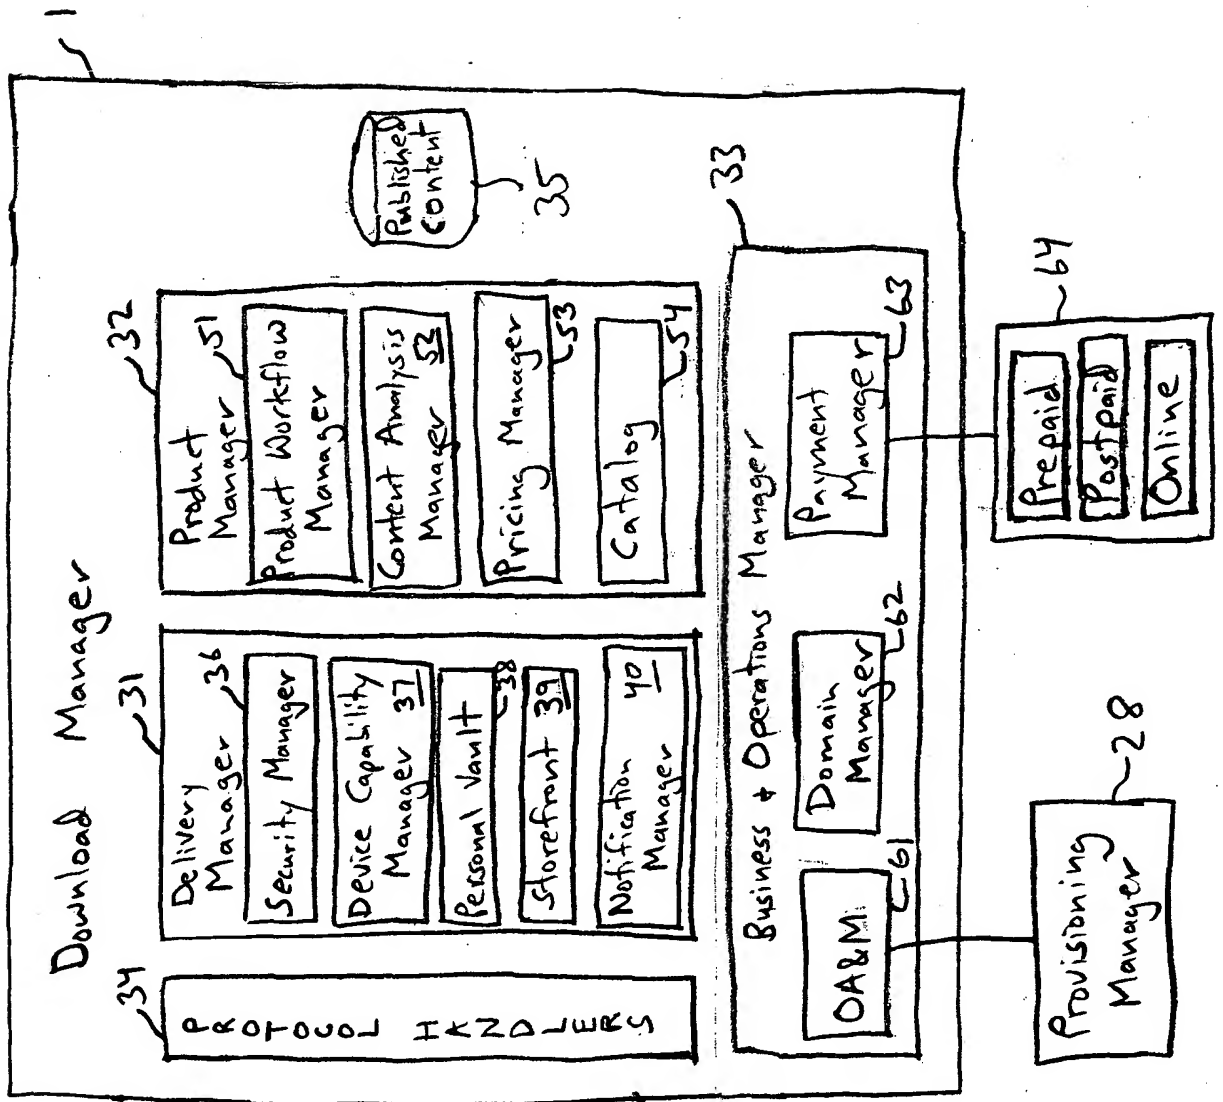 1
Download Manager
34
PROTOCOL HANDLERS
31
Delivery
Manager
36
Security Manager
Device Capability
Manager 37
Personal Vault
38
Storefront 39
Notification 40
Manager
32
Product
Manager
51
Product Workflow
Manager
Content Analysis
Manager 52
Pricing Manager
53
Catalog
54
Published
Content
35
33
Business & Operations Manager
OA&M
61
Domain
Manager
62
Payment
Manager
63
Provisioning
Manager
28
Prepaid
Postpaid
Online
64